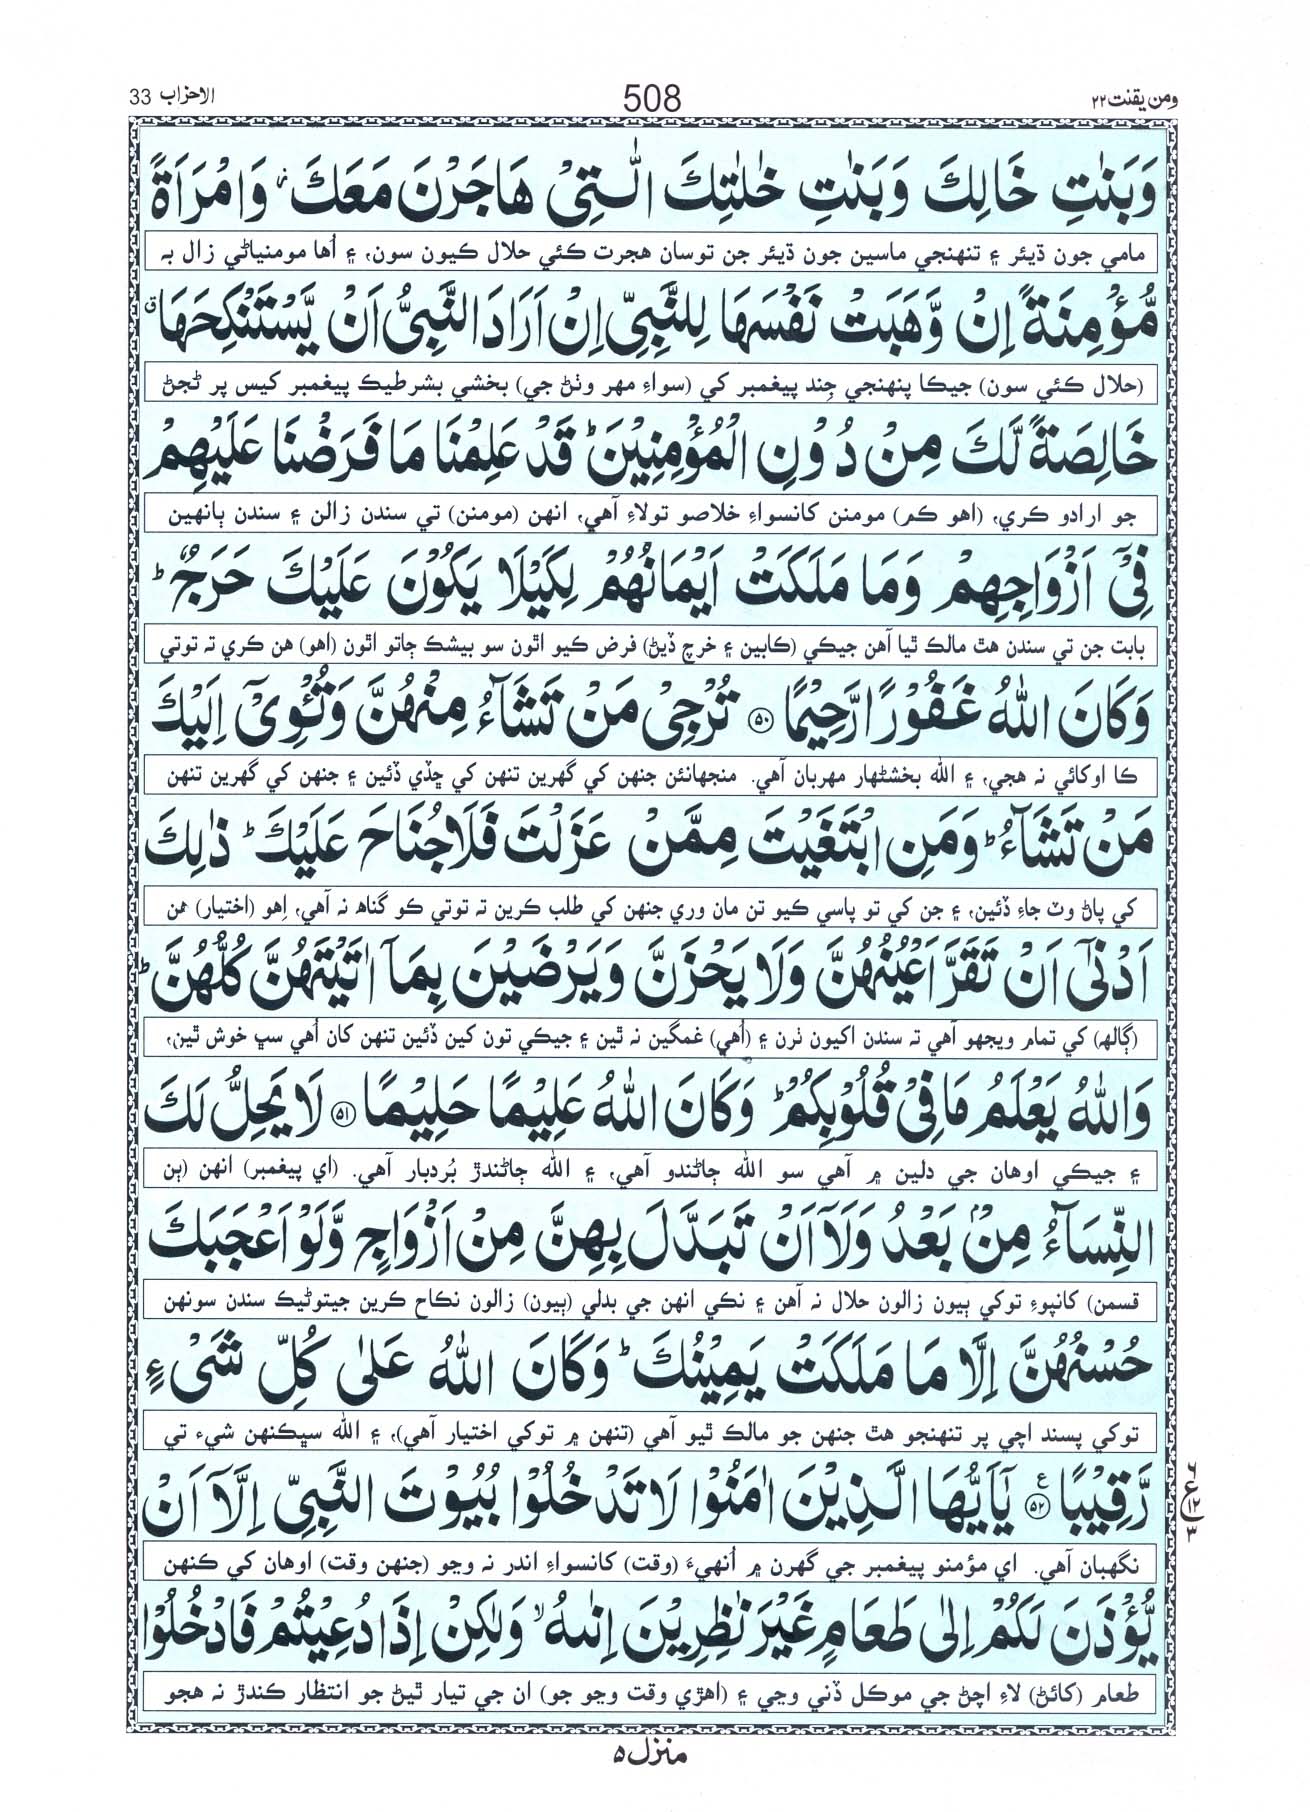 ومن يقنت ٢٢ 508 الاحزاب 33
وَبَنٰتِ خَالِكَ وَبَنٰتِ خٰلٰتِكَ الّٰتِیْ هَاجَرْنَ مَعَكَ ؗ وَامْرَاَةً
مامي جون ڌيئر ۽ تنهنجي ماسين جون ڌيئر جن توسان هجرت ڪئي حلال ڪيون سون، ۽ اُها مومنياڻي زال به
مُّؤْمِنَةً اِنْ وَّهَبَتْ نَفْسَهَا لِلنَّبِیِّ اِنْ اَرَادَ النَّبِیُّ اَنْ یَّسْتَنْكِحَهَا ۗ
(حلال ڪئي سون) جيڪا پنهنجي جِند پيغمبر کي (سواءِ مهر وٺڻ جي) بخشي بشرطيڪ پيغمبر کيس پرڻجڻ
خَالِصَةً لَّكَ مِنْ دُوْنِ الْمُؤْمِنِیْنَ ؕ قَدْ عَلِمْنَا مَا فَرَضْنَا عَلَیْهِمْ
جو ارادو ڪري، (اهو حڪم) مومنن کانسواءِ خلاصو تولاءِ آهي، انهن (مومنن) تي سندن زالن ۽ سندن ٻانهين
فِیْۤ اَزْوَاجِهِمْ وَمَا مَلَكَتْ اَیْمَانُهُمْ لِكَیْلَا یَكُوْنَ عَلَیْكَ حَرَجٌ ؕ
بابت جن تي سندن هٿ مالڪ ٿيا آهن جيڪي (ڪابين ۽ خرچ ڏيڻ) فرض ڪيو اٿون سو بيشڪ ڄاتو اٿون (اهو) هن ڪري ته توتي
وَكَانَ اللّٰهُ غَفُوْرًا رَّحِیْمًا ﴿۵۰﴾ تُرْجِیْ مَنْ تَشَآءُ مِنْهُنَّ وَتُـْٔوِیْۤ اِلَیْكَ
ڪا اوکائي نه هجي، ۽ الله بخشڻهار مهربان آهي. منجهانئن جنهن کي گهرين تنهن کي ڇڏي ڏئين ۽ جنهن کي گهرين تنهن
مَنْ تَشَآءُ ؕ وَمَنِ ابْتَغَیْتَ مِمَّنْ عَزَلْتَ فَلَا جُنَاحَ عَلَیْكَ ؕ ذٰلِكَ
کي پاڻ وٽ جاءِ ڏئين، ۽ جن کي تو پاسي ڪيو تن مان وري جنهن کي طلب ڪرين ته توتي ڪو گناه نه آهي، اِهو (اختيار) هن
اَدْنٰۤی اَنْ تَقَرَّ اَعْیُنُهُنَّ وَلَا یَحْزَنَّ وَیَرْضَیْنَ بِمَاۤ اٰتَیْتَهُنَّ كُلُّهُنَّ ؕ
(ڳالھ) کي تمام ويجهو آهي ته سندن اکيون ٺرن ۽ (اُهي) غمگين نه ٿين ۽ جيڪي تون کين ڏئين تنهن کان اُهي سڀ خوش ٿين،
وَاللّٰهُ یَعْلَمُ مَا فِیْ قُلُوْبِكُمْ ؕ وَكَانَ اللّٰهُ عَلِیْمًا حَلِیْمًا ﴿۵۱﴾ لَا یَحِلُّ لَكَ
۽ جيڪي اوهان جي دلين ۾ آهي سو الله ڄاڻندو آهي، ۽ الله ڄاڻندڙ بُردبار آهي. (اي پيغمبر) انهن (ٻن
النِّسَآءُ مِنْۢ بَعْدُ وَلَاۤ اَنْ تَبَدَّلَ بِهِنَّ مِنْ اَزْوَاجٍ وَّلَوْ اَعْجَبَكَ
قسمن) کانپوءِ توکي ٻيون زالون حلال نه آهن ۽ نڪي انهن جي بدلي (ٻيون) زالون نڪاح ڪرين جيتوڻيڪ سندن سونهن
حُسْنُهُنَّ اِلَّا مَا مَلَكَتْ یَمِیْنُكَ ؕ وَكَانَ اللّٰهُ عَلٰی كُلِّ شَیْءٍ
توکي پسند اچي پر تنهنجو هٿ جنهن جو مالڪ ٿيو آهي (تنهن ۾ توکي اختيار آهي)، ۽ الله سڀڪنهن شيء تي
رَّقِیْبًا ﴿۵۲﴾ ع یٰۤاَیُّهَا الَّذِیْنَ اٰمَنُوْا لَا تَدْخُلُوْا بُیُوْتَ النَّبِیِّ اِلَّاۤ اَنْ
نگهبان آهي. اي مؤمنو پيغمبر جي گهرن ۾ اُنهيءَ (وقت) کانسواءِ اندر نه وڃو (جنهن وقت) اوهان کي ڪنهن
یُّؤْذَنَ لَكُمْ اِلٰی طَعَامٍ غَیْرَ نٰظِرِیْنَ اِنٰىهُ ۙ وَلٰكِنْ اِذَا دُعِیْتُمْ فَادْخُلُوْا
طعام (کائڻ) لاءِ اچڻ جي موڪل ڏني وڃي ۽ (اهڙي وقت وڃو جو) ان جي تيار ٿيڻ جو انتظار ڪندڙ نه هجو
منزل ٥